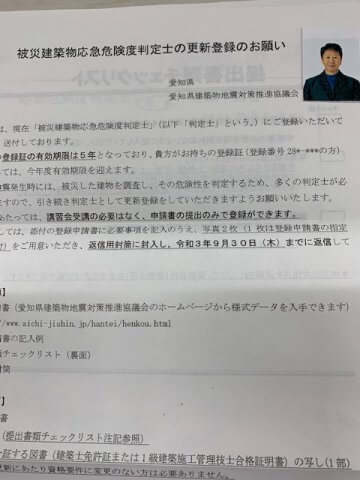 被災建築物応急危険度判定士の更新登録のお願い
愛知県
愛知県建築物地震対策推進協議会
は、現在「被災建築物応急危険度判定士」(以下「判定士」という。)にご登録いただいて
送付しております。
登録証の有効期限は5年となっており、貴方がお持ちの登録証(登録番号 28*-***の方)
ては、今年度有効期限を迎えます。
震発生時には、被災した建物を調査し、その危険性を判定するため、多くの判定士が必
ますので、引き続き判定士として更新登録をしていただきますようお願いいたします。
あたっては、講習会受講の必要はなく、申請書の提出のみで登録ができます。
しては、添付の登録申請書に必要事項を記入のうえ、写真2枚(1枚は登録申請書の指定
)をご用意いただき、返信用封筒に封入し、令和3年9月30日(木)までに返信して
書(愛知県建築物地震対策推進協議会のホームページから様式データを入手できます)
/www.aichi-jishin.jp/hantei/henkou.html
請書の記入例
類チェックリスト(裏面)
封筒
書
(提出書類チェックリスト注記参照)
証する図書(建築士免許証または1級建築施工管理技士合格証明書)の写し(1部)
更新にあたり資格要件に変更のない方は必要ありません。